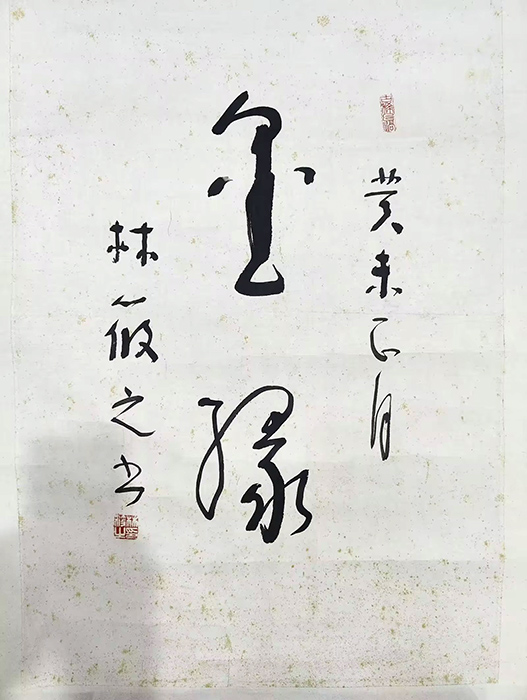 癸未正月
墨缘
林筱之书